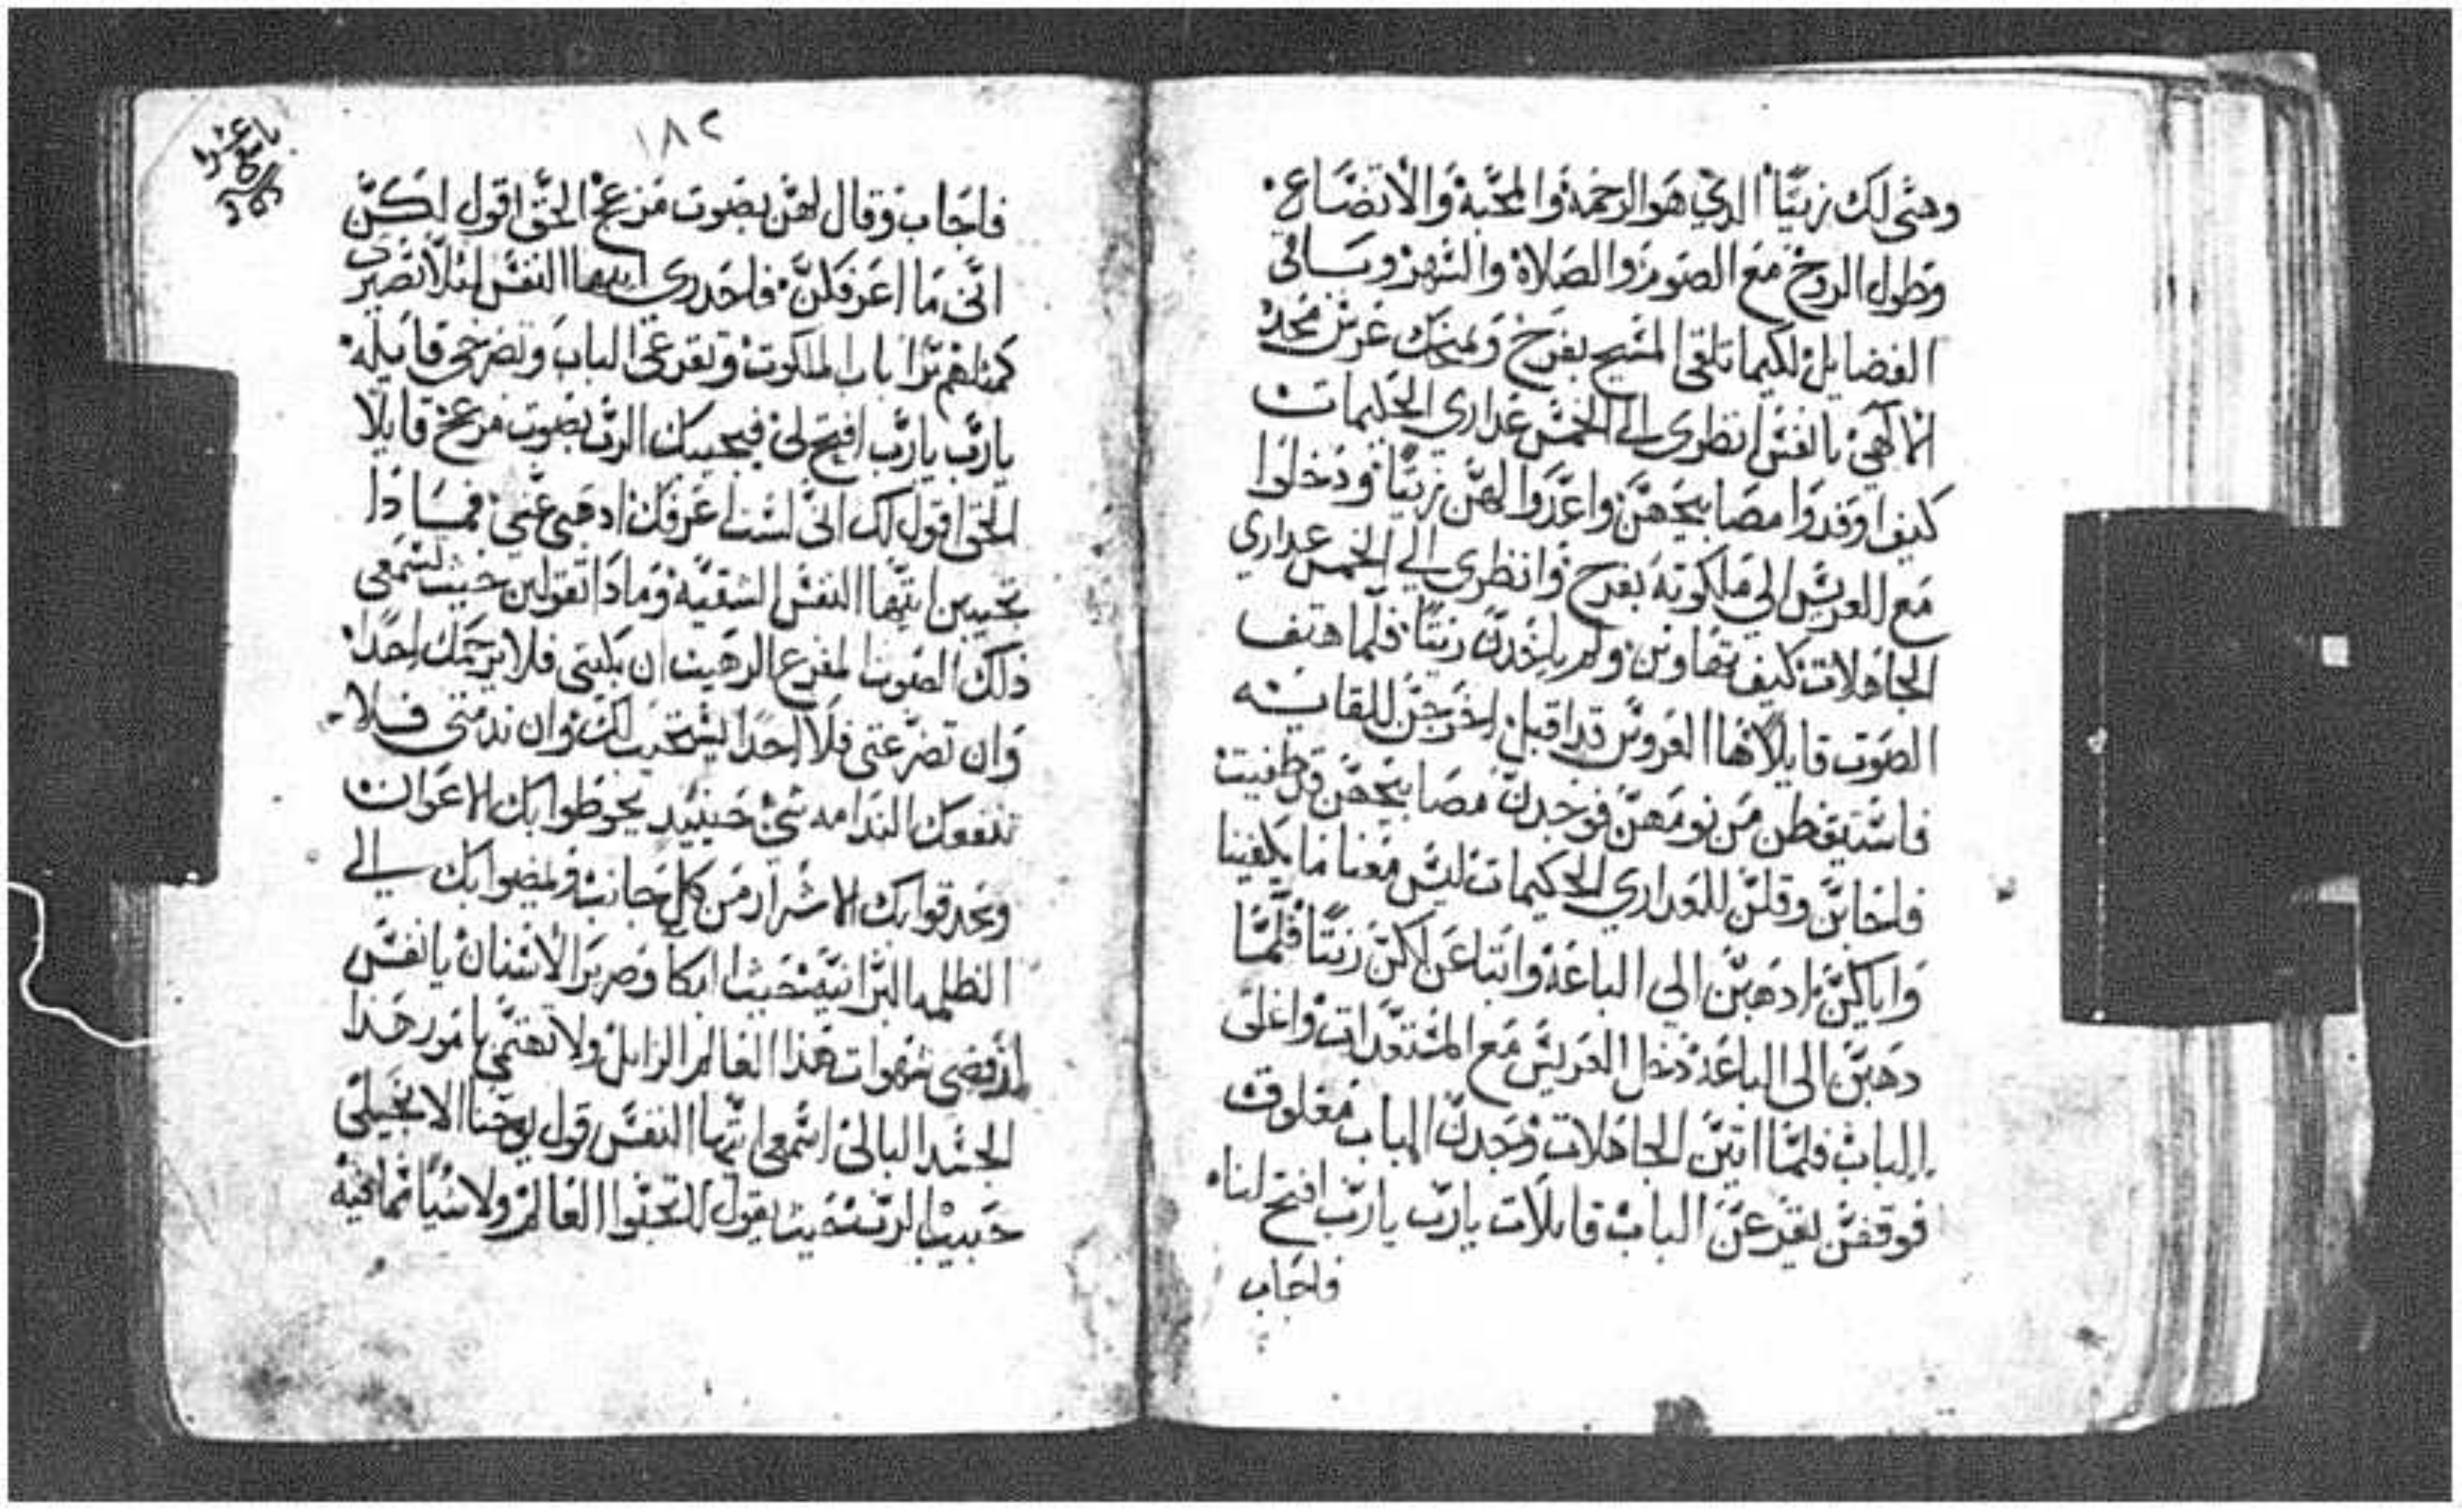 وهيي لك زيتًا الدي هو الرحمة والمحبة والاتضاع.
وطول الروح مع الصوم والصلاة والسهر وساقى
الفضايل لكيما تلقي المسيح بفرح ويمنحك عرس مجده
الالاهي يا نفس انظري الي الخمس عداري الحكيمات
كيف اوقدوا مصابيحهن واعدوا لهن زيتًا ودخلوا
مع العريس الي ملكوته بفرح وانظري الي الخمس عداري
الجاهلات كيف تهاون ولم ياخدن زيتًا فلما هتف
الصوت قايلًا ها العروس قد اقبل اخرجن للقايه
فاستيقظن من نومهن فوجدن مصابيحهن قد طفيت
فلجابن وقلن للعداري الحكيمات ليس معنا ما يكفينا
واياكن ادهبن الي الباعة وابتاعن لكن زيتًا فلما
دهبن الي الباعة دخل العريس مع المستعدات واغلق
الباب فلما اتين الجاهلات وجدن الباب مغلوق
فوقفن يقرعن الباب قايلات يارب يارب افتح لنا
فاجاب
١٨٢
فاجاب وقال لهن بصوت مزعج الحق اقول لكن
اني ما اعرفكن. فاحدري ايتها النفس ليلا تصيري
كمثلهم برا باب الملكوت وتقرعي الباب وتصرخي قايله.
يارب يارب افتح لي فيجيبك الرب بصوت مزعج قايلًا
الحق اقول لك اني لست اعرفك ادهبي عني فمادا
تجيبين ايتها النفس الشقية ومادا تقولين حيث تسمعي
دلك الصوت المفزع الرهيب ان بكيتي فلا يرحمك احدًا.
وان تضرعتي فلا احدًا يستجيب لك وان ندمتي فلا
تنفعك الندامه شي حينيد يحوطوا بك الاعوان
ويحدقوا بك الاشرار من كل جانب ويمضوا بك الي
الظلمه البرانية حيث البكا وصرير الاسنان يا نفس
ارفضي شهوات هدا العالم الزايل ولا تهتمي بامور هدا
الجسد البالي اسمعي ايتها النفس قول يوحنا الانجيلي
حبيب الرب حيث يقول لا تحبوا العالم ولا شيًا مما فيه